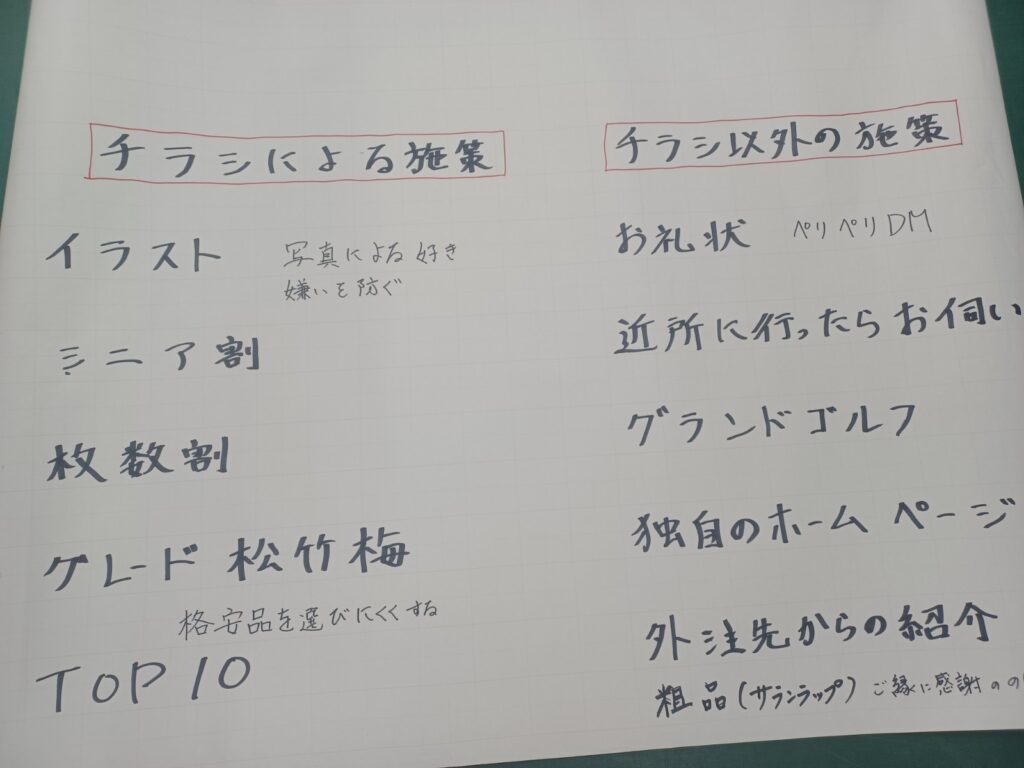 チラシによる施策
イラスト 写真による好き
嫌いを防ぐ
ミニア割
枚数割
グレード 松竹梅
格安品を選びにくくする
TOP10
チラシ以外の施策
お礼状 ペリペリDM
近所に行ったらお伺い
グランドゴルフ
独自のホームページ
外注先からの紹介
粗品(サランラップ) ご縁に感謝の